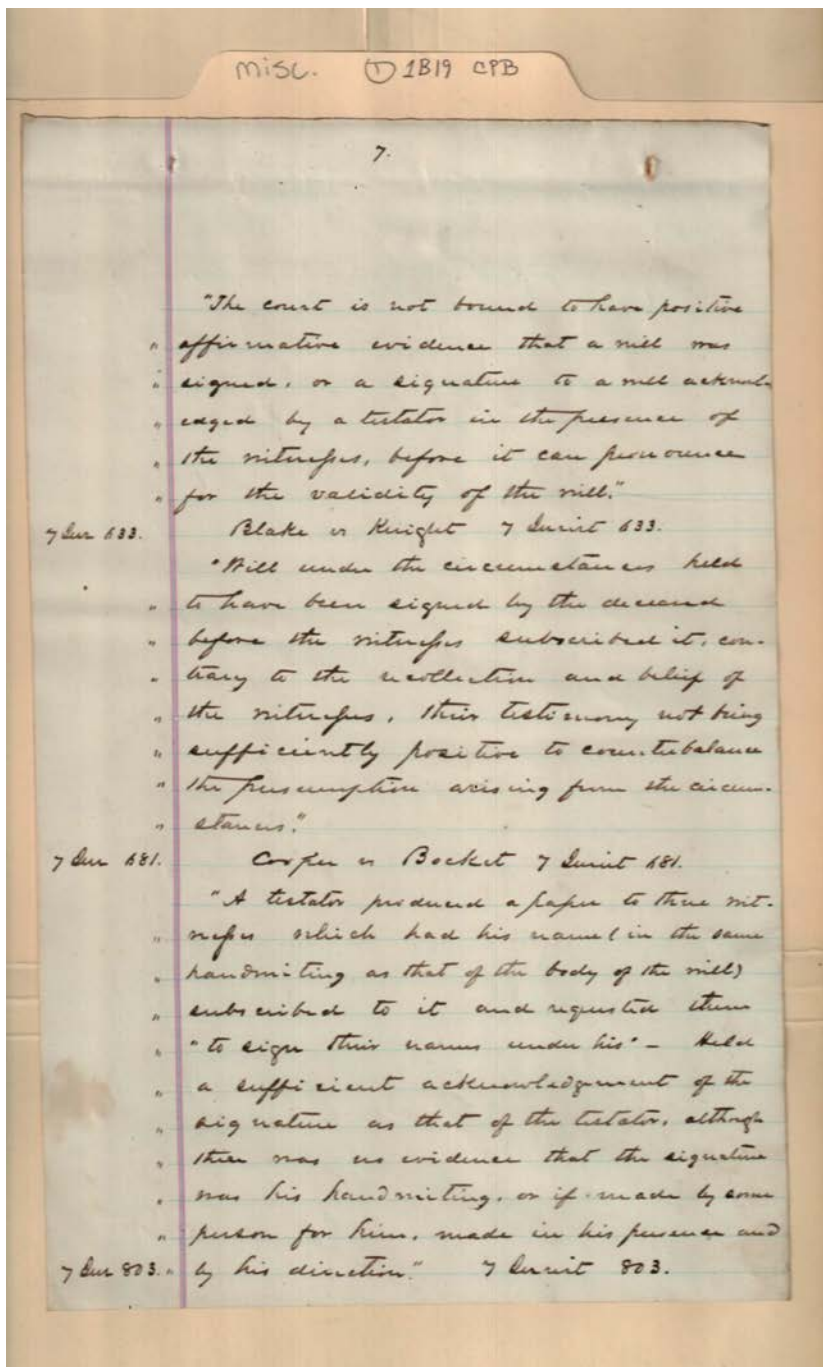 misc. ① 1B19 CPB
7.
"The court is not bound to have positive
" affirmative evidence that a will was
" signed, or a signature to a will acknowl-
" edged by a testator in the presence of
" the witnesses, before it can pronounce
" for the validity of the will."
7 Jur 633. Blake vs Knight 7 Jurist 633.
"Will under the circumstances held
" to have been signed by the deceased
" before the witnesses subscribed it, con-
" trary to the recollection and belief of
" the witnesses, their testimony not being
" sufficiently positive to counterbalance
" the presumption arising from the circum-
" stances."
7 Jur 681. Cooper vs Bocket 7 Jurist 681.
"A testator produced a paper to three wit-
" nesses which had his name (in the same
" handwriting as that of the body of the will)
" subscribed to it and requested them
" "to sign their names under his" – Held
" a sufficient acknowledgement of the
" signature as that of the testator, although
" there was no evidence that the signature
" was his handwriting, or if made by some
" person for him, made in his presence and
7 Jur 803. " by his direction." 7 Jurist 803.